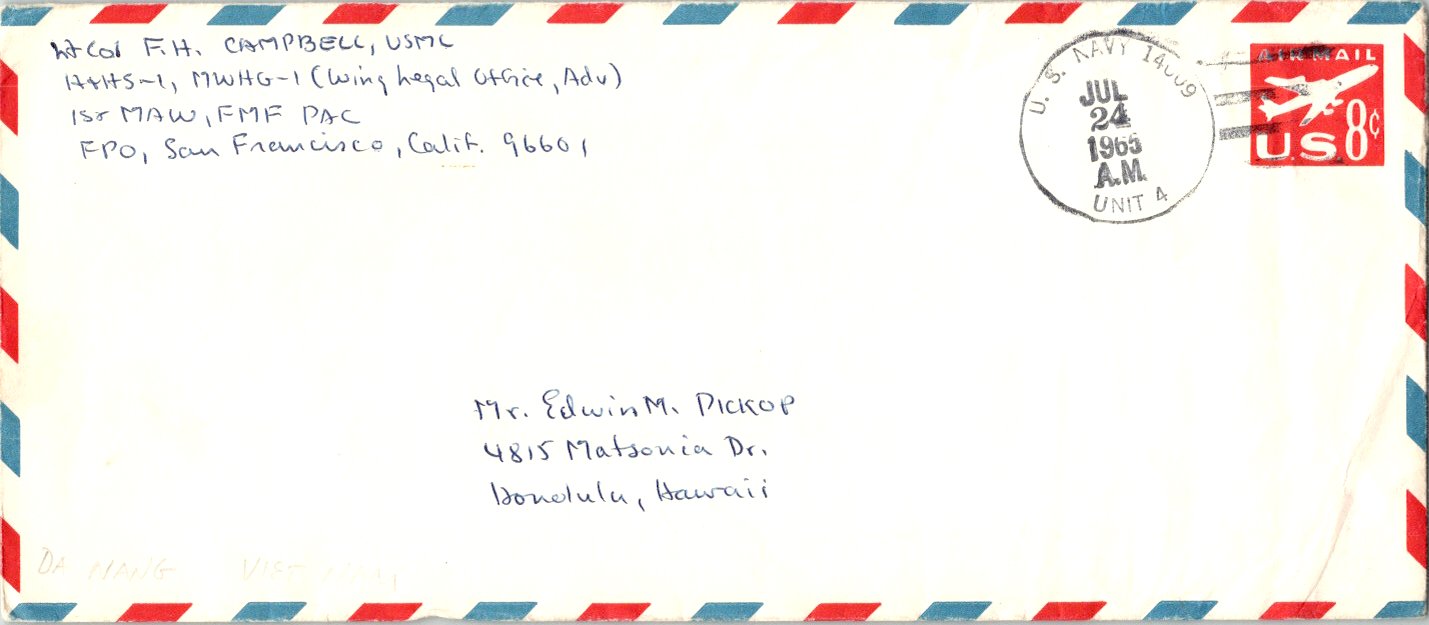 Lt Col F.H. CAMPBELL, USMC
H&HS-1, MWHG-1 (Wing Legal Office, Adv)
1st MAW, FMF PAC
FPO, San Francisco, Calif. 96601
U. S. NAVY 14009
JUL
24
1965
A.M.
UNIT 4
AIR MAIL
US 8¢
Mr. Edwin M. PICKOP
4815 Matsonia Dr.
Honolulu, Hawaii
DA NANG VIET NAM